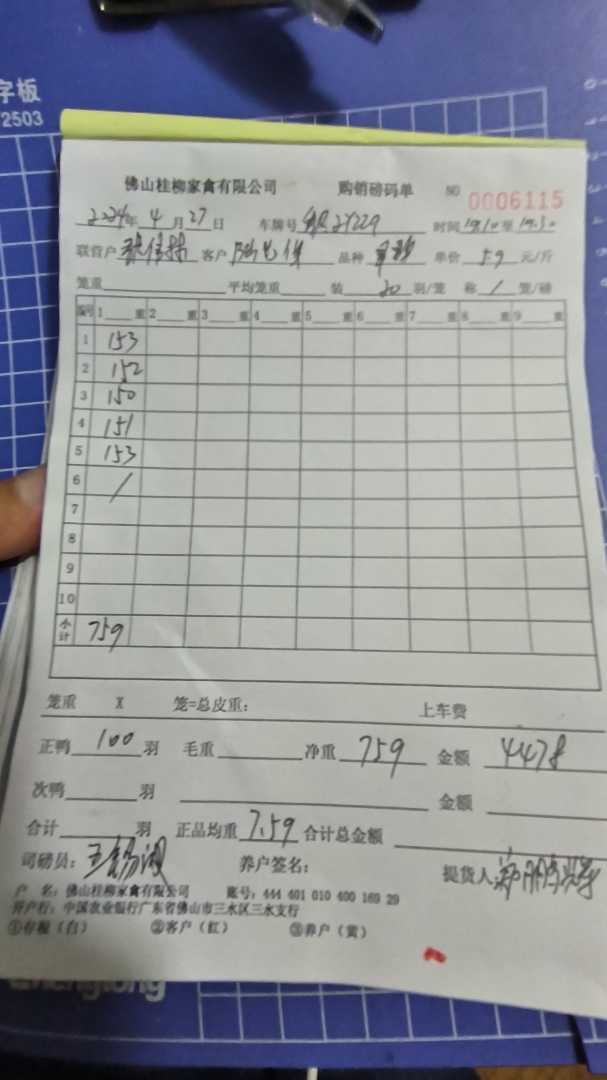 字板
2503
佛山桂柳家禽有限公司 购销磅码单 NO 0006115
2024年 4 月 27 日 车牌号 21229 时间 至
联营户 客户 品种 单价 5.9 元/斤
笼重 平均笼重 装 20 羽/笼 称 / 笼/磅
编号 1 重 2 重 3 重 4 重 5 重 6 重 7 重 8 重 9 重
1 153
2 152
3 150
4 151
5 153
6 /
7
8
9
10
小计 759
笼重 X 笼=总皮重: 上车费
正鸭 100 羽 毛重 净重 759 金额 4478
次鸭 羽 金额
合计 羽 正品均重 7.59 合计总金额
司磅员: 养户签名: 提货人:
户 名: 佛山桂柳家禽有限公司 账号: 444 601 010 400 169 29
开户行: 中国农业银行广东省佛山市三水区三水支行
①存根(白) ②客户(红) ③养户(黄)